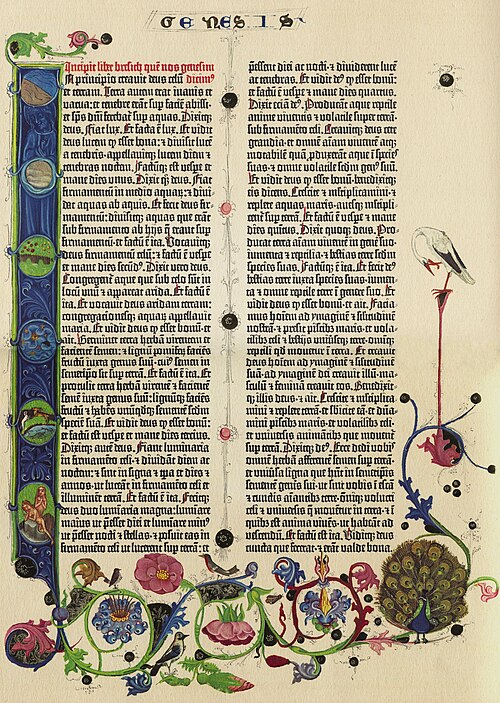 GENESIS
Incipit liber bresich quē nos genesim
In principio creavit deus celū dicimꝰ
et terram. Terra autem erat inanis et
vacua: et tenebre erāt sup facie abissi:
et spūs dñi ferebat sup aquas. Dixitqꝫ
deus. Fiat lux. Et facta ē lux. Et vidit
deus lucem qꝫ esset bona: et divisit lucē
a tenebris-appellavitqꝫ lucem diem et
tenebras noctem. Factūqꝫ est vespe et
mane dies unus. Dixit qꝫ deus. Fiat
firmamentū in medio aquaꝝ: et divi-
dat aquas ab aquis. Et fecit deus fir-
mamentū: divisitqꝫ aquas que erāt
sub firmamento ab hijs q̄ erant sup
firmamentū: et factū ē ita. Vocavitqꝫ
deus firmamentū celū: et factū ē vespe
et mane dies secūdꝰ. Dixit vero deus.
Congregent aque que sub celo sūt in
locū unū et appareat arida. Et factū ē
ita. Et vocavit deus aridam terram:
congregacionesqꝫ aquaꝝ appellavit
maria. Et vidit deus qꝫ esset bonū-et
ait. Germinet terra herbā virentem et
facientē semen: et lignū pomifeꝝ faciēs
fructū iuxta genus suū-cuiꝰ semen in
semetipso sit sup terrā. Et factū ē ita. Et
protulit terra herbā virentē et facientē
semē iuxta genus suū: lignūqꝫ faciēs
fructū et habēs unūqdqꝫ sementē scdm
speciē suā. Et vidit deus qꝫ esset bonū:
et factū est vespe et mane dies tercius.
Dixitqꝫ autē deus. Fiant luminaria
in firmamēto celi-et dividāt diem ac
noctem: et sint in signa et tpa et dies et
annos-ut luceāt in firmamēto celi et
illuminēt terrā. Et factū ē ita. Fecitqꝫ
deus duo luminaria magna: luminare
maius ut pesset diei et luminare minꝰ
ut pesset nocti et stellas-et posuit eas in
firmamēto celi ut lucerent sup terrā: et
pessent diei ac nocti-et dividerent lucē
ac tenebras. Et vidit dꝰ qꝫ esset bonū:
et factū ē vespe et mane dies quartus.
Dixit eciā dꝰ. Producāt aque reptile
anime viventis et volatile super terrā-
sub firmamēto celi. Creavitqꝫ deus cete
grandia-et omnē aīam viventē atqꝫ
motabilē quā pduxerāt aque ī species
suas-et omne volatile scdm genꝰ suū.
Et vidit deus qꝫ esset bonū-benedixitqꝫ
eis dicens. Crescite et mltiplicamini-et
replete aquas maris-avesqꝫ mltipli-
cent sup terrā. Et factū ē vespe et mane
dies quītus. Dixit quoqꝫ deus. Pro-
ducat terra aīam viventē in gene suo-
iumenta et reptilia-et bestias terre scdm
species suas. Factūqꝫ ē ita. Et fecit dꝰ
bestias terre iuxta species suas-iumen-
ta et omne reptile terre ī genere suo. Et
vidit deus qꝫ esset bonū-et ait. Facia-
mus hoīem ad ymaginē et silitudinē
nostrā-et presit piscibꝫ maris-et vola-
tilibꝫ celi et bestijs universeqꝫ terre-omniqꝫ
reptili qd movetur ī terra. Et creavit
deus hoīem ad ymaginē et silitudinē
suā-ad ymaginē dei creavit illū-ma-
sculū et feminā creavit eos. Benedixit-
qꝫ illis deus-et ait. Crescite et mltiplica-
mini et replete terrā-et sbicite eā-et dña-
mini piscibꝫ maris-et volatilibꝫ celi-
et universis animātibꝫ que moventur
sup terrā. Dixitqꝫ dꝰ. Ecce dedi vobis
omnē herbā afferentē semen sup terrā-
et uniūsa ligna que hñt in semetipsis
semetē genēis sui-ut sint vobis ī escā
et cunctis aīantibꝫ terre-omniqꝫ volucri
celi et universis q̄ moventur in terra-et
quibꝫ est anima vivēs-ut habeāt ad
vescendū. Et factū est ita. Viditqꝫ deus
cuncta que fecerat-et erāt valde bona.